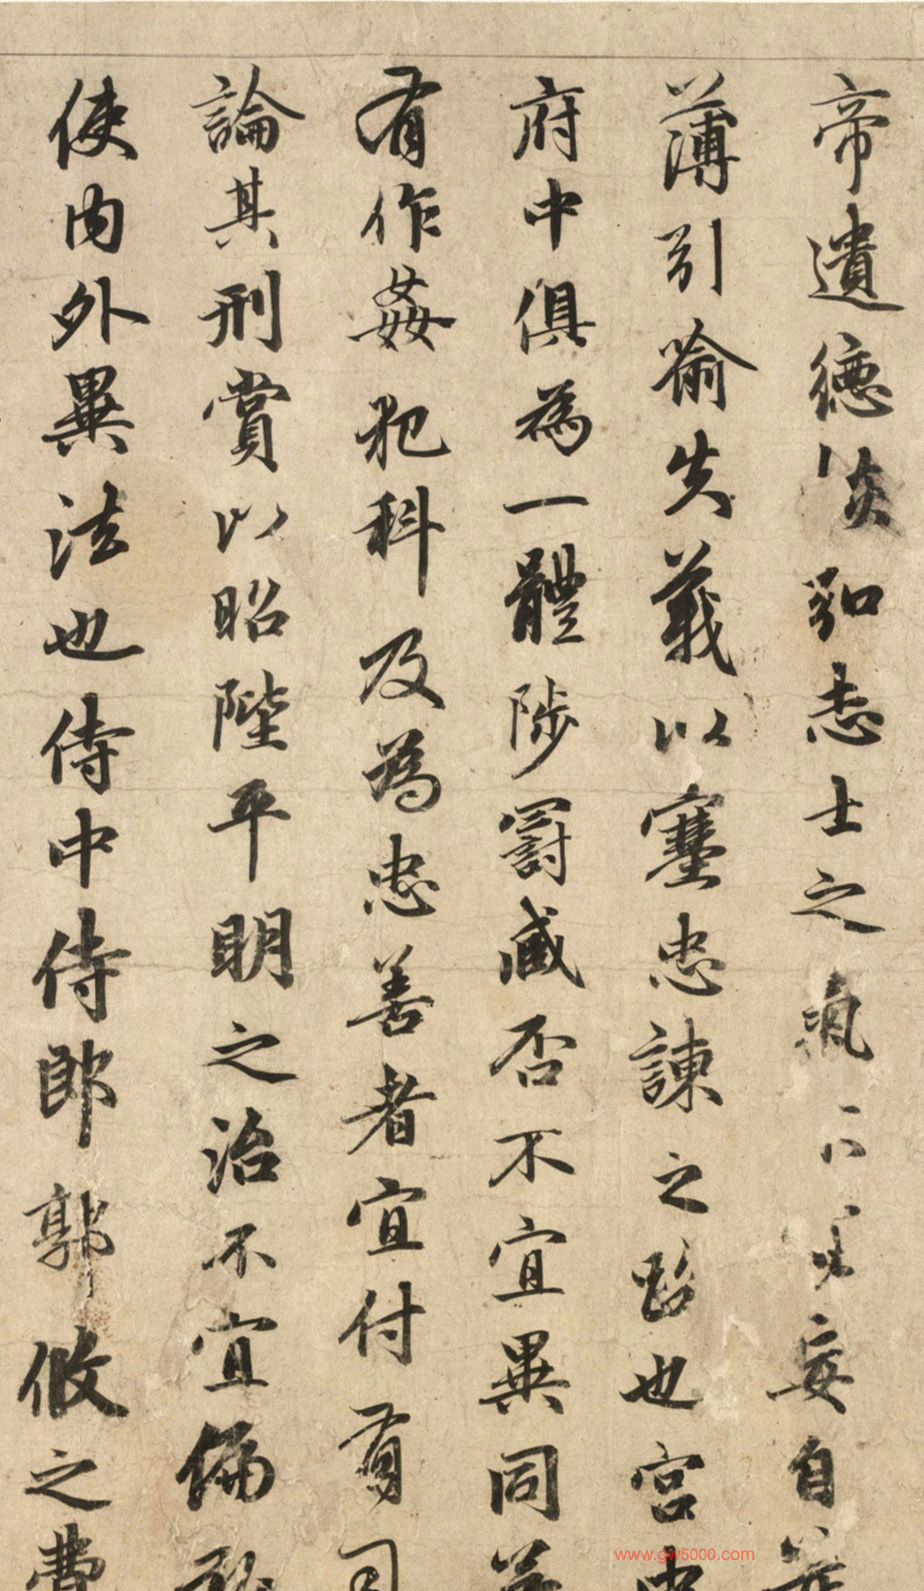 帝遺德恢弘志士之氣不妄自菲
薄引喻失義以塞忠諫之路也宮中
府中俱為一體陟罰臧否不宜異同若
有作姦犯科及為忠善者宜付有司
論其刑賞以昭陛平明之治不宜偏私
使內外異法也侍中侍郎郭攸之費
www.gw5000.com